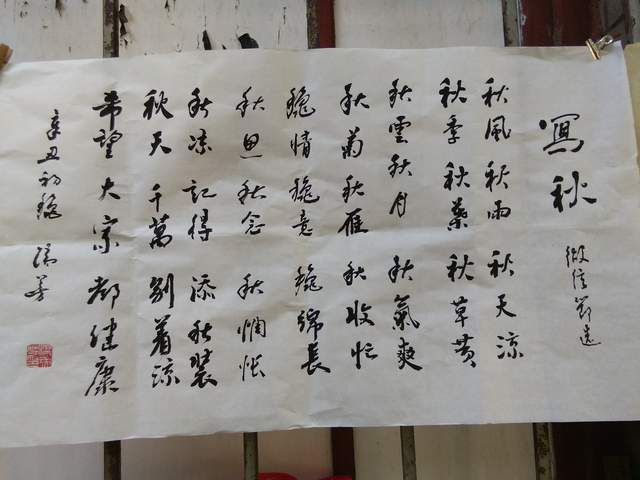 寫秋
微信節选
秋風秋雨秋天涼
秋季秋葉秋草黄
秋雲秋月秋氣爽
秋菊秋雁秋收忙
龝情龝意龝綿長
秋思秋念秋惆悵
秋凉記得添秋裝
秋天千萬别着涼
希望大家都健康
辛丑初龝